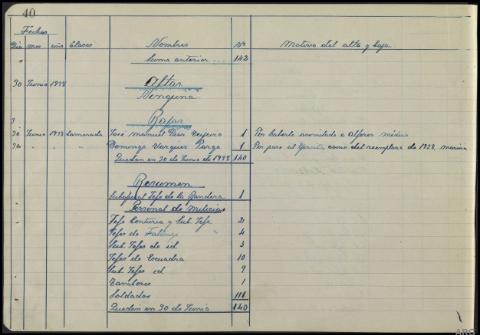 40
Fechas
Día mes año Clases Nombres Nº Motivo del alta y baja
Suma anterior... 142
30 Junio 1938 Altas
Ninguna
Bajas
30 Junio 1938 Camarada José Manuel 1 Por haberle a Alférez médico
30 " " Domingo Vazquez Parga 1 Por pase al Ejército como del reemplazo de 1928, marina
Quedan en 30 de Junio de 1938 140
Resumen
Jefe de la Bandera 1
Personal de Milicias
Jefe Centuria y Sub Jefe 2
Jefes de Falange 4
Sub Jefes de id 3
Jefes de Escuadra 10
Sub Jefes id 9
Tambores 1
Soldados 111
Quedan en 30 de Junio 140